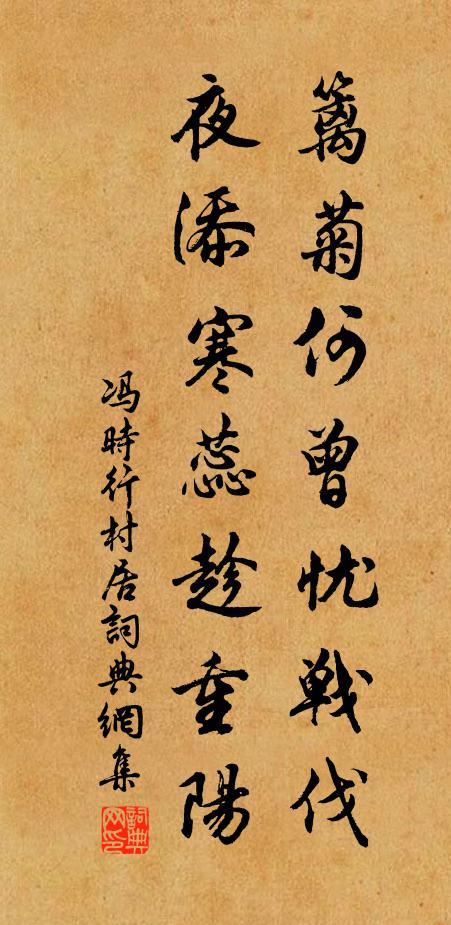 籬菊何曾忧戰伐
夜添寒蕊趁重陽
冯時行村居詞典網集
詞典網印